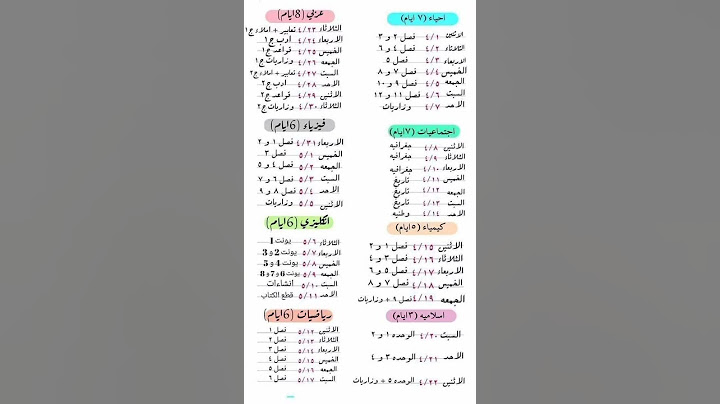 احياء (٧ ايام)
الاثنين ٤/١ فصل ٢ و ٣
الثلاثاء ٤/٢ فصل ٤ و ٦
الاربعاء ٤/٣ فصل ٥
الخميس ٤/٤ فصل ٧ و ٨
الجمعه ٤/٥ فصل ٩ و ١٠
السبت ٤/٦ فصل ١١ و ١٢
الاحد ٤/٧ وزاريات
اجتماعيات (٧ ايام)
الاثنين ٤/٨ جغرافيه
الثلاثاء ٤/٩ جغرافيه
الاربعاء ٤/١٠ جغرافيه
الخميس ٤/١١ تاريخ
الجمعه ٤/١٢ تاريخ
السبت ٤/١٣ تاريخ
الاحد ٤/١٤ وطنيه
كيمياء (٥ ايام)
الاثنين ٤/١٥ فصل ١ و ٢
الثلاثاء ٤/١٦ فصل ٣ و ٤
الاربعاء ٤/١٧ فصل ٥ و ٦
الخميس ٤/١٨ فصل ٧ و ٨
الجمعه ٤/١٩ فصل ٩ + وزاريات
اسلاميه (٣ ايام)
السبت ٤/٢٠ الوحده ١ و ٢
الاحد ٤/٢١ الوحده ٣ و ٤
الاثنين ٤/٢٢ الوحده ٥ + وزاريات
عربي (8 ايام)
الثلاثاء ٤/٢٣ تعابير + املاء ج١
الاربعاء ٤/٢٤ ادب ج١
الخميس ٤/٢٥ قواعد ج١
الجمعه ٤/٢٦ وزاريات ج١
السبت ٤/٢٧ تعابير + املاء ج٢
الاحد ٤/٢٨ ادب ج٢
الاثنين ٤/٢٩ قواعد ج٢
الثلاثاء ٤/٣٠ وزاريات ج٢
فيزياء (6 ايام)
الاربعاء ٤/٣١ فصل ١ و ٢
الخميس ٥/١ فصل ٣
الجمعه ٥/٢ فصل ٤ و ٥
السبت ٥/٣ فصل ٦ و ٧
الاحد ٥/٤ فصل ٨ و ٩
الاثنين ٥/٥ وزاريات
انكليزي (6 ايام)
الثلاثاء ٥/٦ يونت 1
الاربعاء ٥/٧ يونت 2 و 3
الخميس ٥/٨ يونت 4 و 5
الجمعه ٥/٩ يونت 6 و 7 و 8
السبت ٥/١٠ انشاءات
الاحد ٥/١١ قطع الكتاب
رياضيات (6 ايام)
الاثنين ٥/١٢ فصل ١
الثلاثاء ٥/١٣ فصل ٢
الاربعاء ٥/١٤ فصل ٣
الخميس ٥/١٥ فصل ٤
الجمعه ٥/١٦ فصل ٥
السبت ٥/١٧ فصل ٦